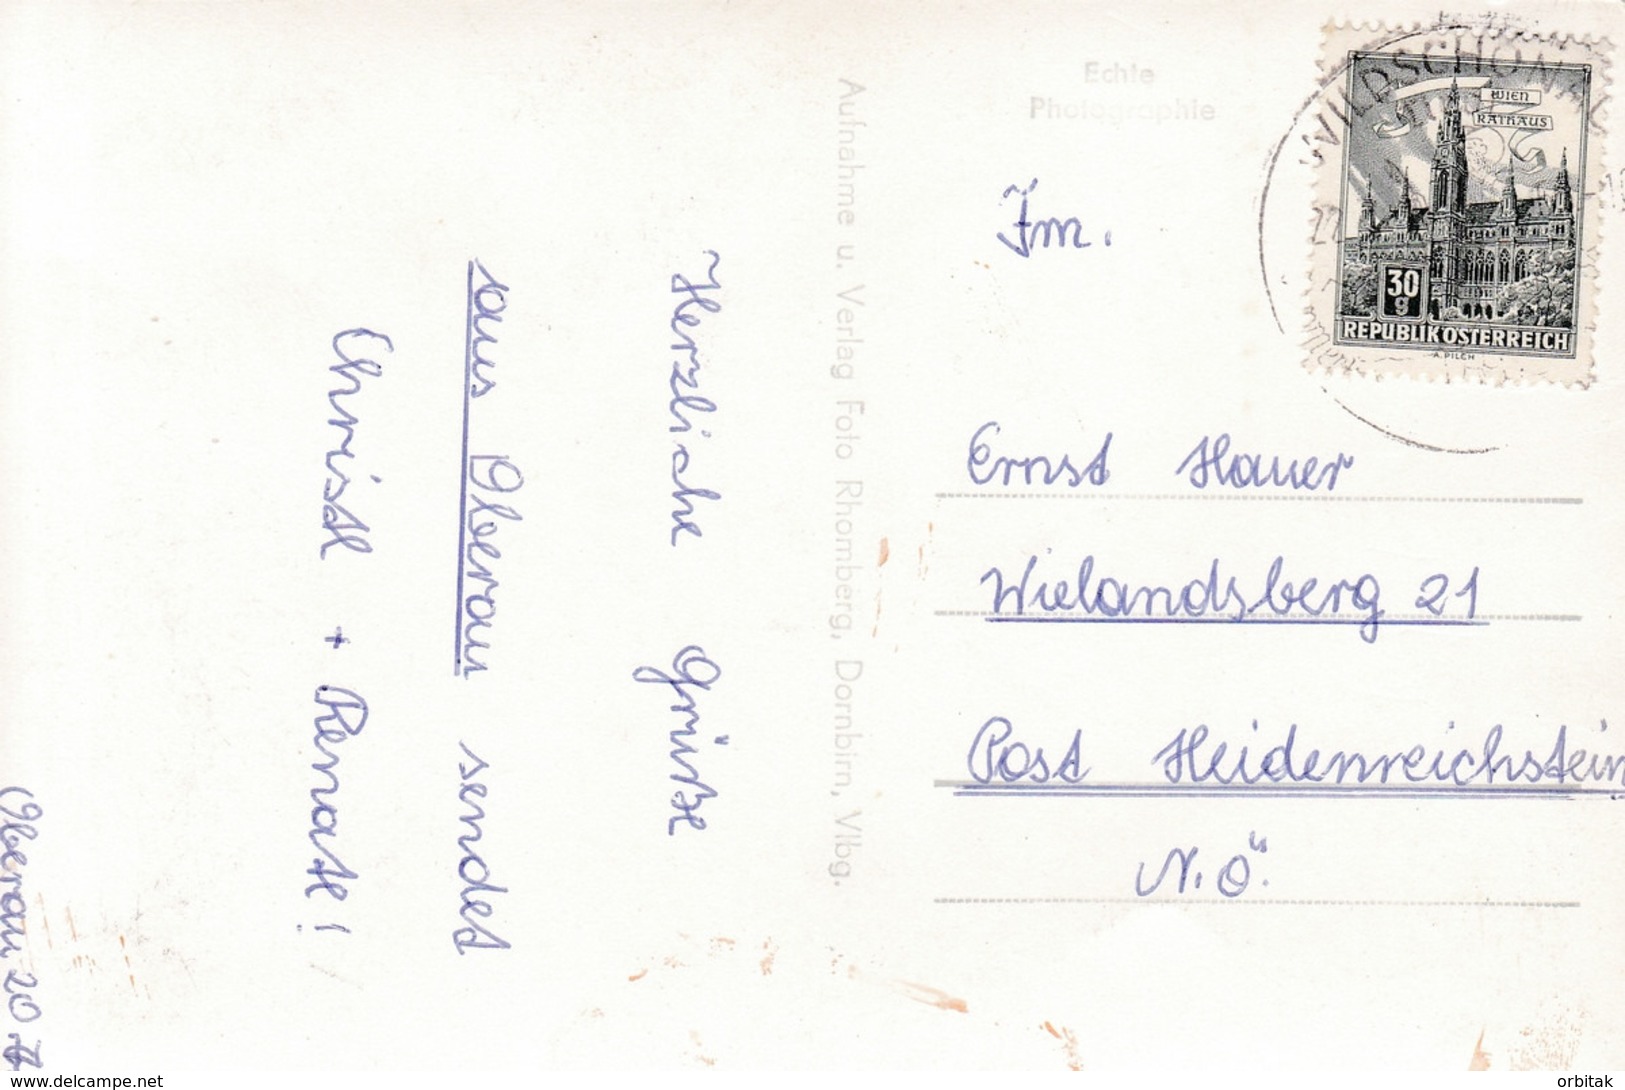 Herzliche Grüße
aus Oberau sendet
Christl + Renate!
Oberau 20
Aufnahme u. Verlag Foto Rhomberg, Dornbirn, Vlbg.
Echte
Photographie
WIEN
RATHAUS
30
g
REPUBLIK ÖSTERREICH
A. PILCH
WILDSCHÖNAU
Fm.
Ernst Hauer
Wielandsberg 21
Post Heidenreichstein
N.Ö.
www.delcampe.net
orbitak